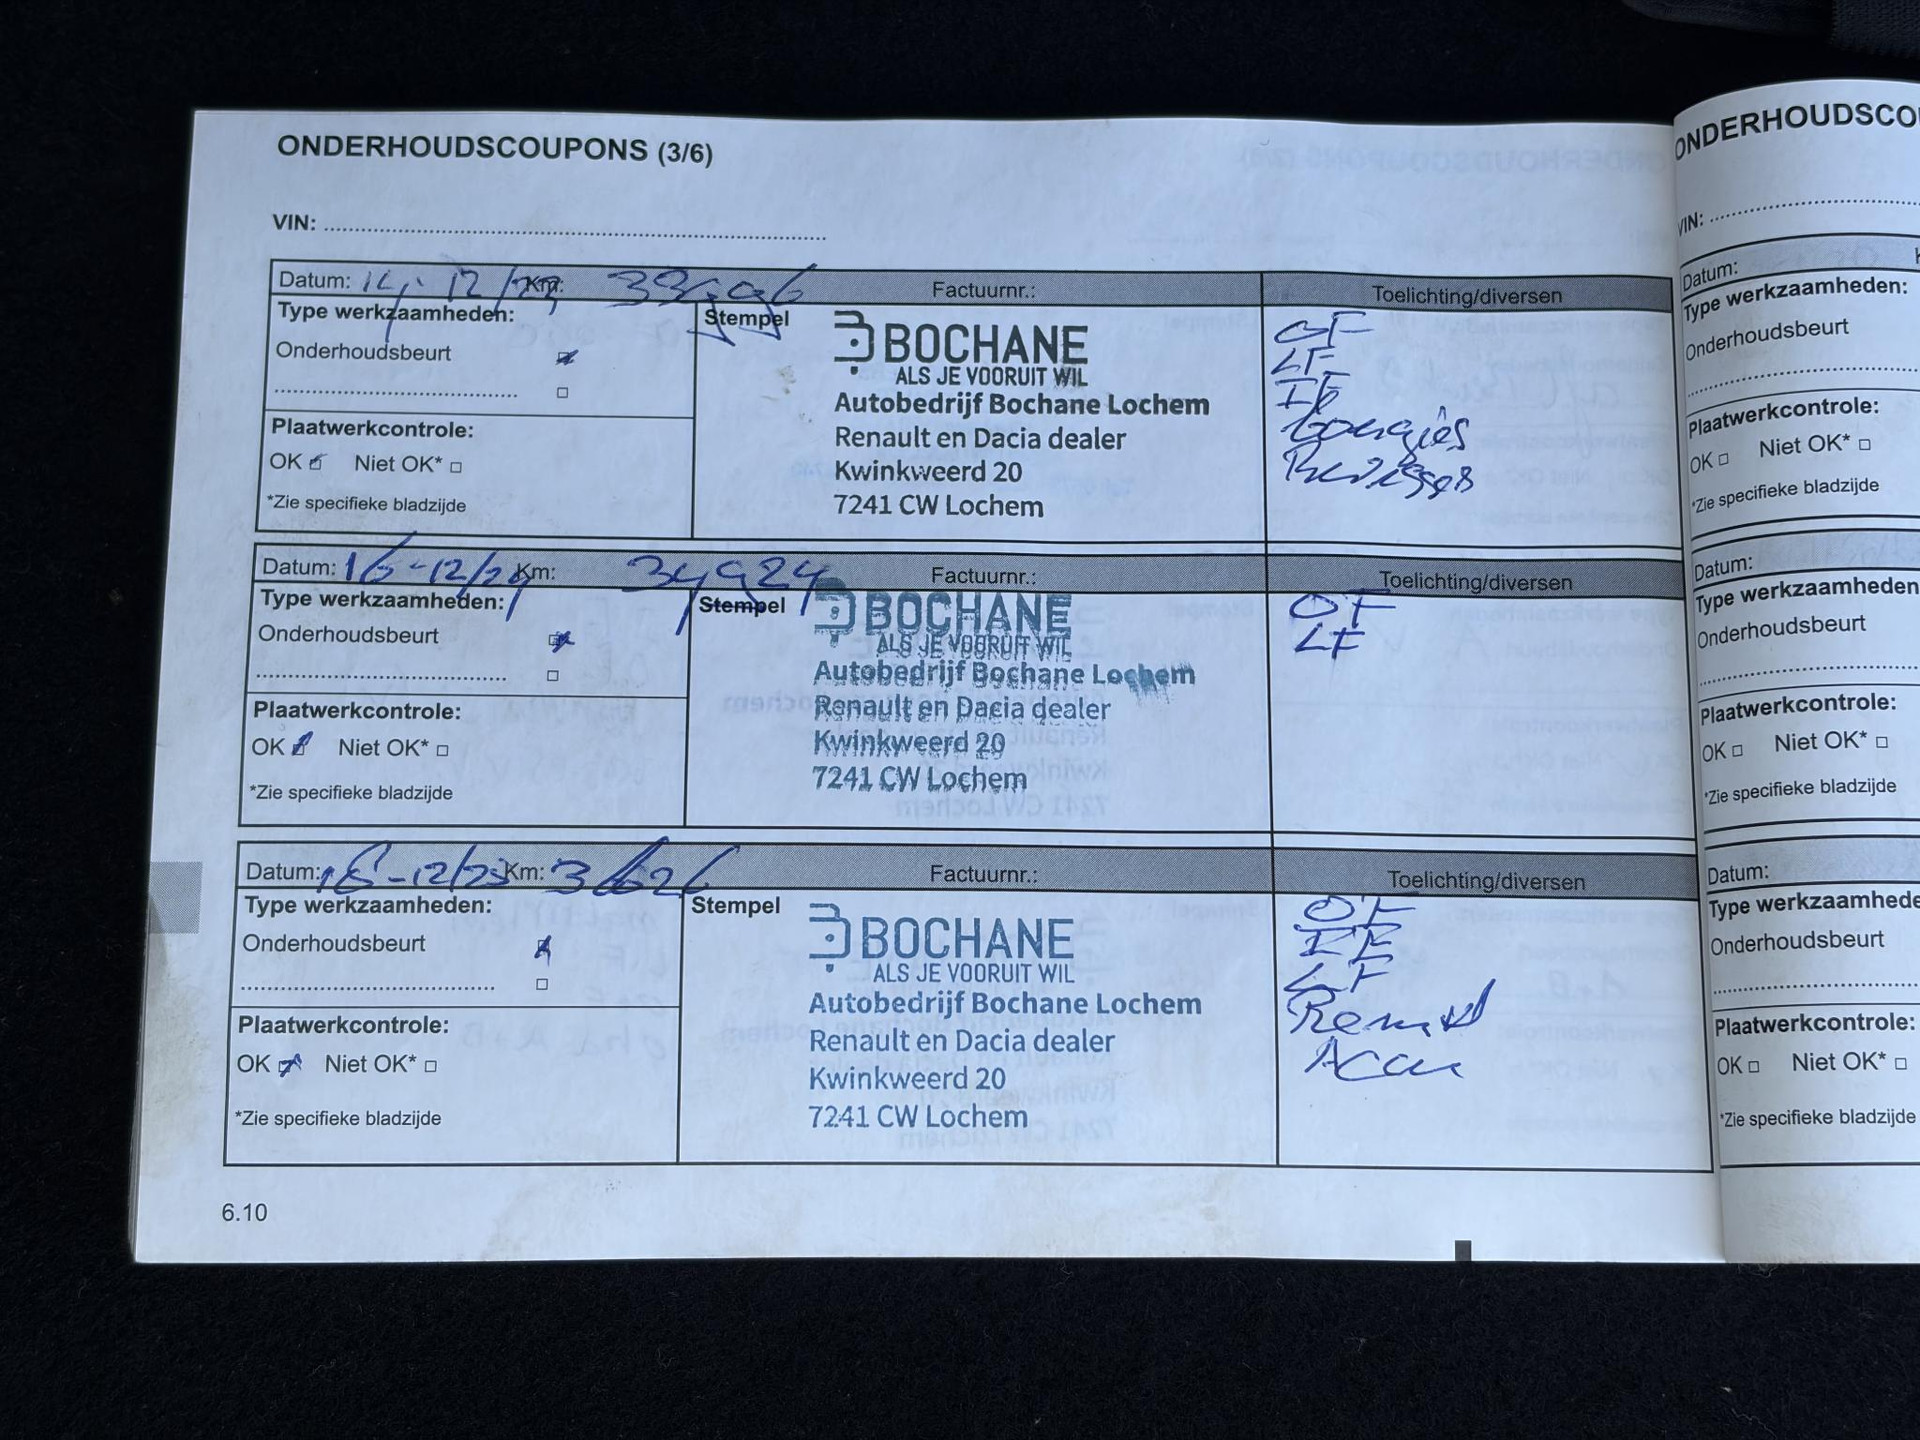 ONDERHOUDSCOUPONS (3/6)
VIN:
Datum: 14-12/23 Km: Factuurnr.: Toelichting/diversen
Type werkzaamheden: Stempel
Onderhoudsbeurt
Plaatwerkcontrole:
OK Niet OK*
*Zie specifieke bladzijde
BOCHANE
ALS JE VOORUIT WIL
Autobedrijf Bochane Lochem
Renault en Dacia dealer
Kwinkweerd 20
7241 CW Lochem
OF
LF
IF
bougies
Datum: 16-12/24 Km: 34924 Factuurnr.: Toelichting/diversen
Type werkzaamheden: Stempel
Onderhoudsbeurt
Plaatwerkcontrole:
OK Niet OK*
*Zie specifieke bladzijde
BOCHANE
ALS JE VOORUIT WIL
Autobedrijf Bochane Lochem
Renault en Dacia dealer
Kwinkweerd 20
7241 CW Lochem
OF
LF
Datum: Km: Factuurnr.: Toelichting/diversen
Type werkzaamheden: Stempel
Onderhoudsbeurt
Plaatwerkcontrole:
OK Niet OK*
*Zie specifieke bladzijde
BOCHANE
ALS JE VOORUIT WIL
Autobedrijf Bochane Lochem
Renault en Dacia dealer
Kwinkweerd 20
7241 CW Lochem
OF
IF
LF
Accu
6.10
ONDERHOUDSCO
VIN:
Datum:
Type werkzaamheden:
Onderhoudsbeurt
Plaatwerkcontrole:
OK Niet OK*
*Zie specifieke bladzijde
Datum:
Type werkzaamheden
Onderhoudsbeurt
Plaatwerkcontrole:
OK Niet OK*
*Zie specifieke bladzijde
Datum:
Type werkzaamhede
Onderhoudsbeurt
Plaatwerkcontrole:
OK Niet OK*
*Zie specifieke bladzijde